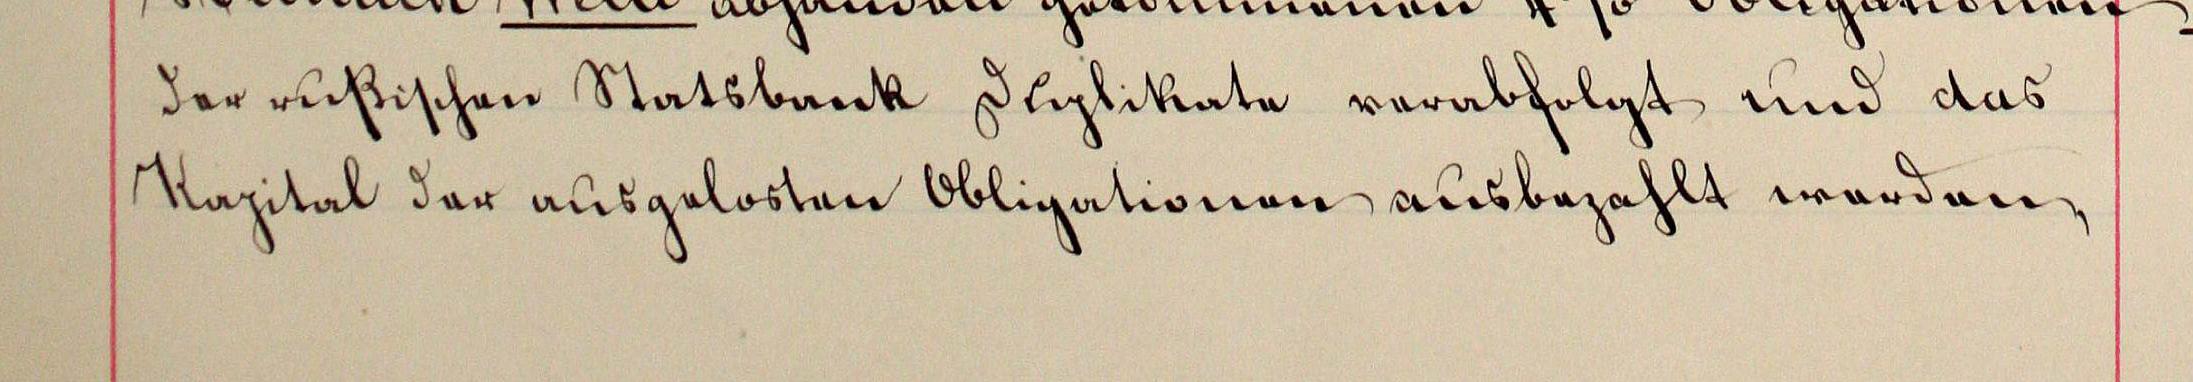 abhanden gekommenen 4 % Obligationen
der rußischen Statsbank Duplikate verabfolgt und das
Kapital der ausgelosten Obligationen ausbezahlt werden,